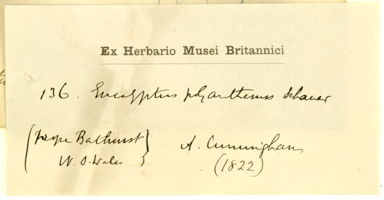 Ex Herbario Musei Britannici
136. Eucalyptus polyanthemos Schauer
Bathurst
N. S. Wales
A. Cunningham
(1822)